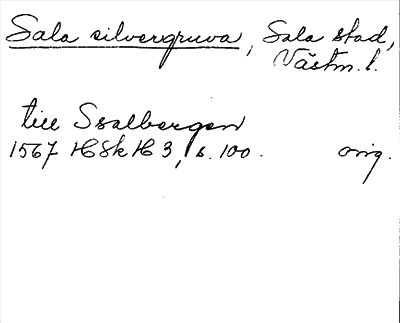 Sala silvergruva, Sala stad,
Västm. l.
till Ssalbergen
1567 HSkH 3, s. 100. orig.